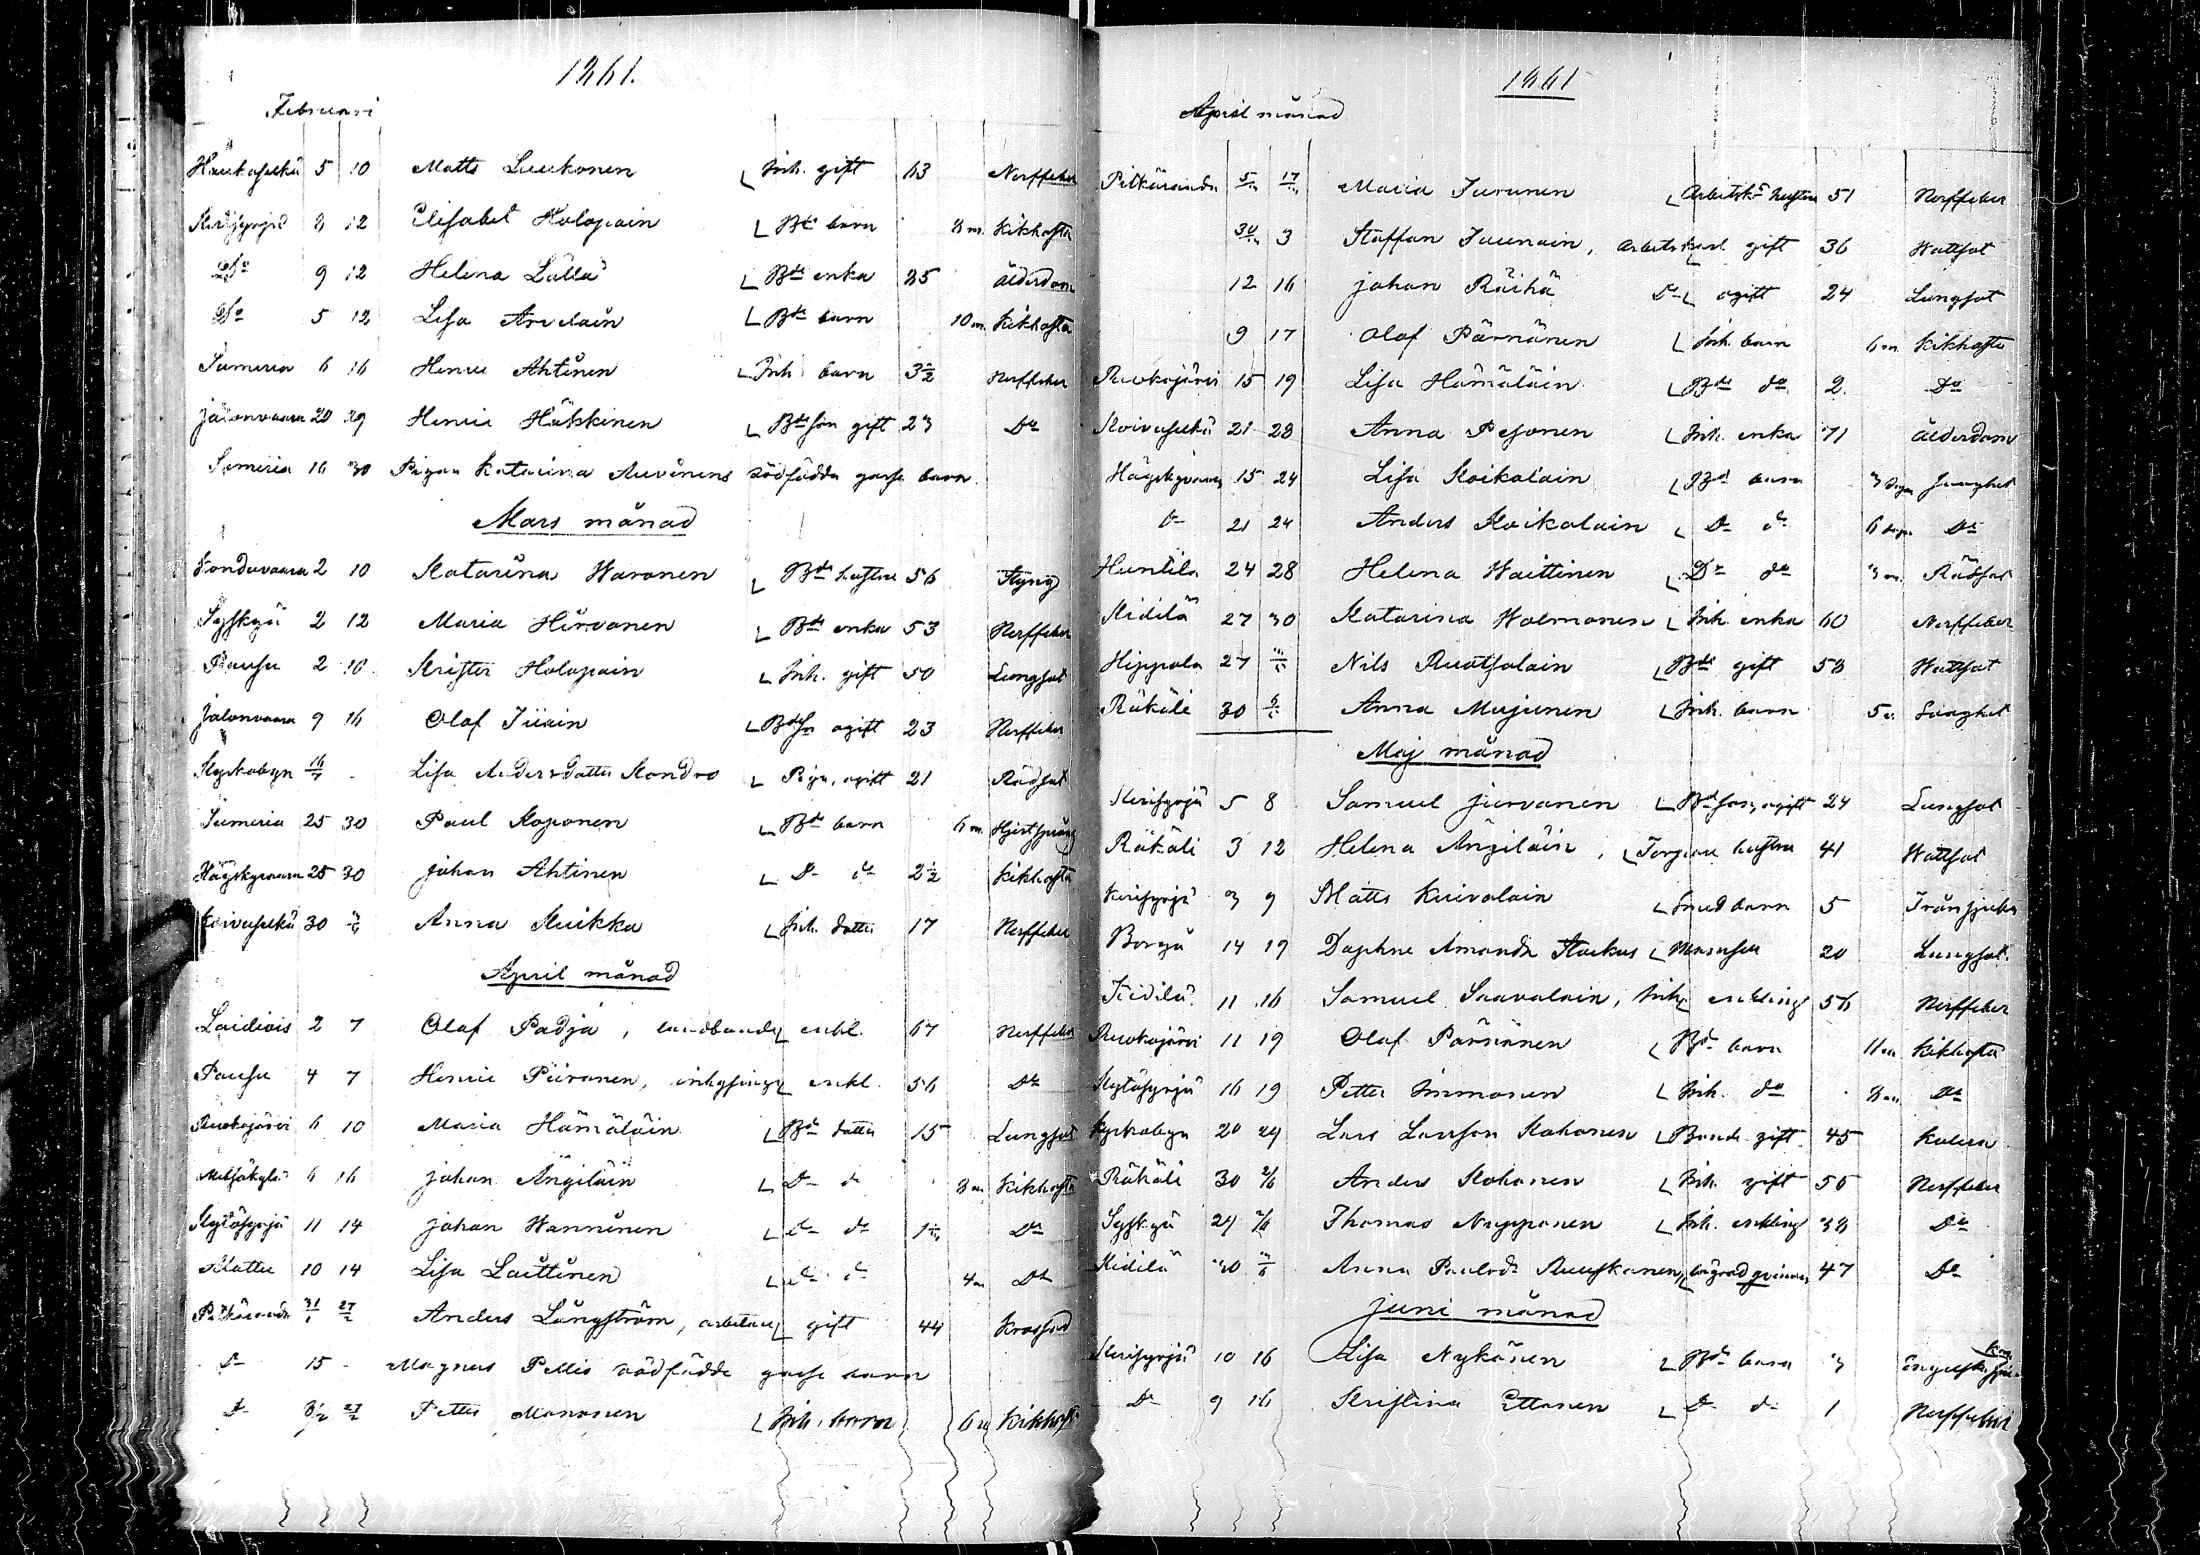 1861.
Februari
Haukaselkä 5 10 Matts Luukonen Inh. gift 63 Nerffeber
Kerisyrjä 8 12 Elisabet Holopain Bde barn 8 m. Kikhosta
Do 9 12 Helena Lällä Bde enka 85 ålderdom
Do 5 12 Lisa Arvelain Bde barn 10 m. Kikhosta
Sumeria 6 16 Henric Ahtinen Inh barn 3½ Nerffeber
Jalonvaara 20 29 Henric Häkkinen Bde son gift 23 Do
Sumeria 16 30 Pigan Katarina Auvinens dödfödda gosse barn
Mars månad
2 10 Katarina Waronen Bde hustru 56 Styng
Syskyä 2 12 Maria Hirvonen Bde enka 53 Nerffeber
Pausu 2 10 Krister Holopain Inh. gift 50 Lungsot
Jalonvaara 9 16 Olof Ogift 23 Nerffeber
Kyrkobyn Lisa Andersdotter Kondro Piga, ogift 21 Rödsot
Sumeria 25 30 Paul Koponen Bde barn 6 m.
25 30 Johan Ahtinen D- do 2½ Kikhosta
Koivuselkä 30 Anna Kuikka Inh. dotter 17 Nerffeber
April månad
2 7 Olof Padja, landbonde enkl. 67 Nerffeber
Pausu 4 7 Henric Piironen, inhysing enkl. 56 Do
Ruokojärvi 6 10 Maria Hämäläin Bde dotter 15 Lungsot
6 16 Johan Ängiläin D- d- 8 m Kikhosta
Kytösyrjä 11 14 Johan Wanninen D- d- Do
Klattu 10 14 Lisa Laittinen d- d- 4 m Do
Pitkäranda Anders Långström, arbetare gift 44
D- 15 - Magnus Pellis dödfödde gosse barn
D- Petter Mononen Inh. barn 6 m Kikhosta
1861
April månad
Pitkäranda Maria Turunen Arbetsk. hustru 51 Nerffeber
3 Staffan Juunain, arbetskarl gift 36 Wattsot
12 16 Johan Räihä D- ogift 24 Lungsot
9 17 Olof Pärnänen Inh. barn 6 m. Kikhosta
Ruokojärvi 15 19 Lisa Hämäläin Bde do 2 Do
Koivuselkä 21 23 Anna Pesonen Inh. enka 71 ålderdom
15 24 Lisa Koikolain Bde barn 3 dagar
D- 21 24 Anders Koikolain D- d- 6 dagar Do
Huntila 24 28 Helena Waittinen D- do 3 m. Rödsot
Kidilä 27 30 Katarina Wolmonen Inh. enka 60 Nerffeber
Hippola 27 Nils Ruotsalain Bde gift 58 Wattsot
Räkäli 30 Anna Mujunen Inh. barn
Maj månad
Kerisyrjä 5 8 Samuel Jurvanen Bde son, ogift 24 Lungsot
Räkäli 3 12 Helena Ängiläin, Torpare hustru 41 Wattsot
Kerisyrjä 3 9 Matts Kuivalain Smed barn 5
Borgå 14 19 Daphne Amanda Stackus Mamsell 20 Lungsot.
11 16 Samuel Saavalain, Inh enkling 56 Nerffeber
Ruokojärvi 11 19 Olof Pärnänen Bde barn 11 m Kikhosta
Kytösyrjä 16 19 Petter Immonen Inh. do 8 m Do
Kyrkobyn 20 29 Lars Larsson Kohonen Bonde gift 45 Kolera
Räkäli 30 2/6 Anders Kohonen Inh. gift 55 Nerffeber
Syskyä 29 2/6 Thomas Nupponen Inh. enkling 38 Do
Kidilä 30 Anna Paulsdr Ruuskanen qvinna 47 Do
Juni månad
Kerisyrjä 10 16 Lisa Nykänen Bde barn 3 Engelska sjuk
D- 9 16 Kristina Ettonen D- d- 1 Nerffeber